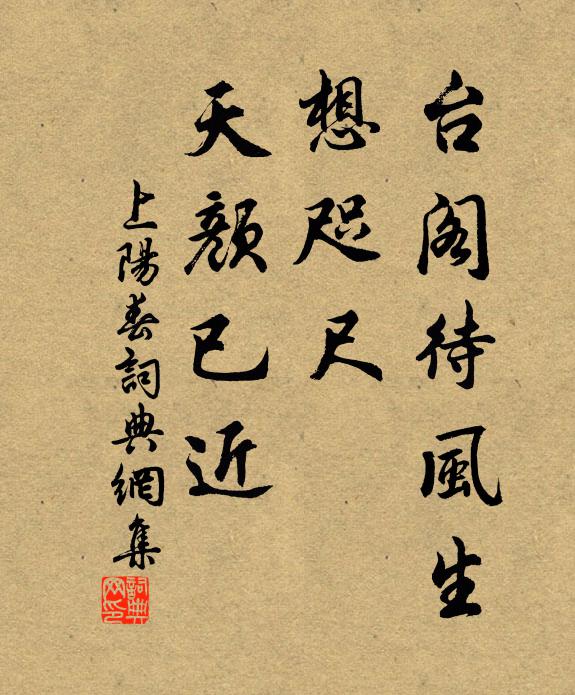 台閣待風生
想咫尺
天顏已近
上陽春詞典網集
詞典
网印